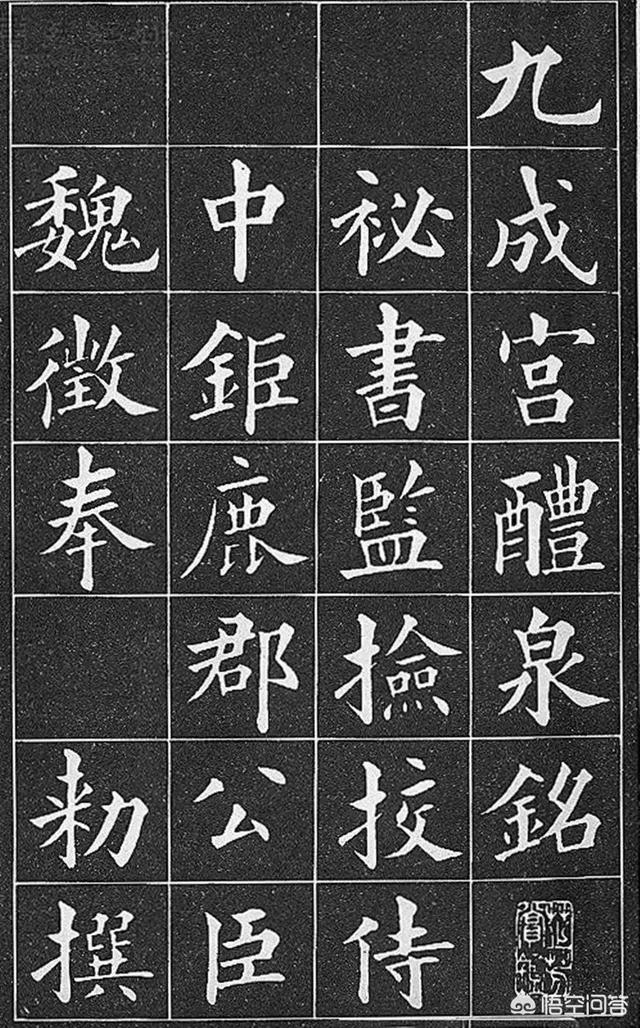 九成宫醴泉銘
祕書監撿挍侍
中鉅鹿郡公臣
魏徵奉 勑撰
悟空问答